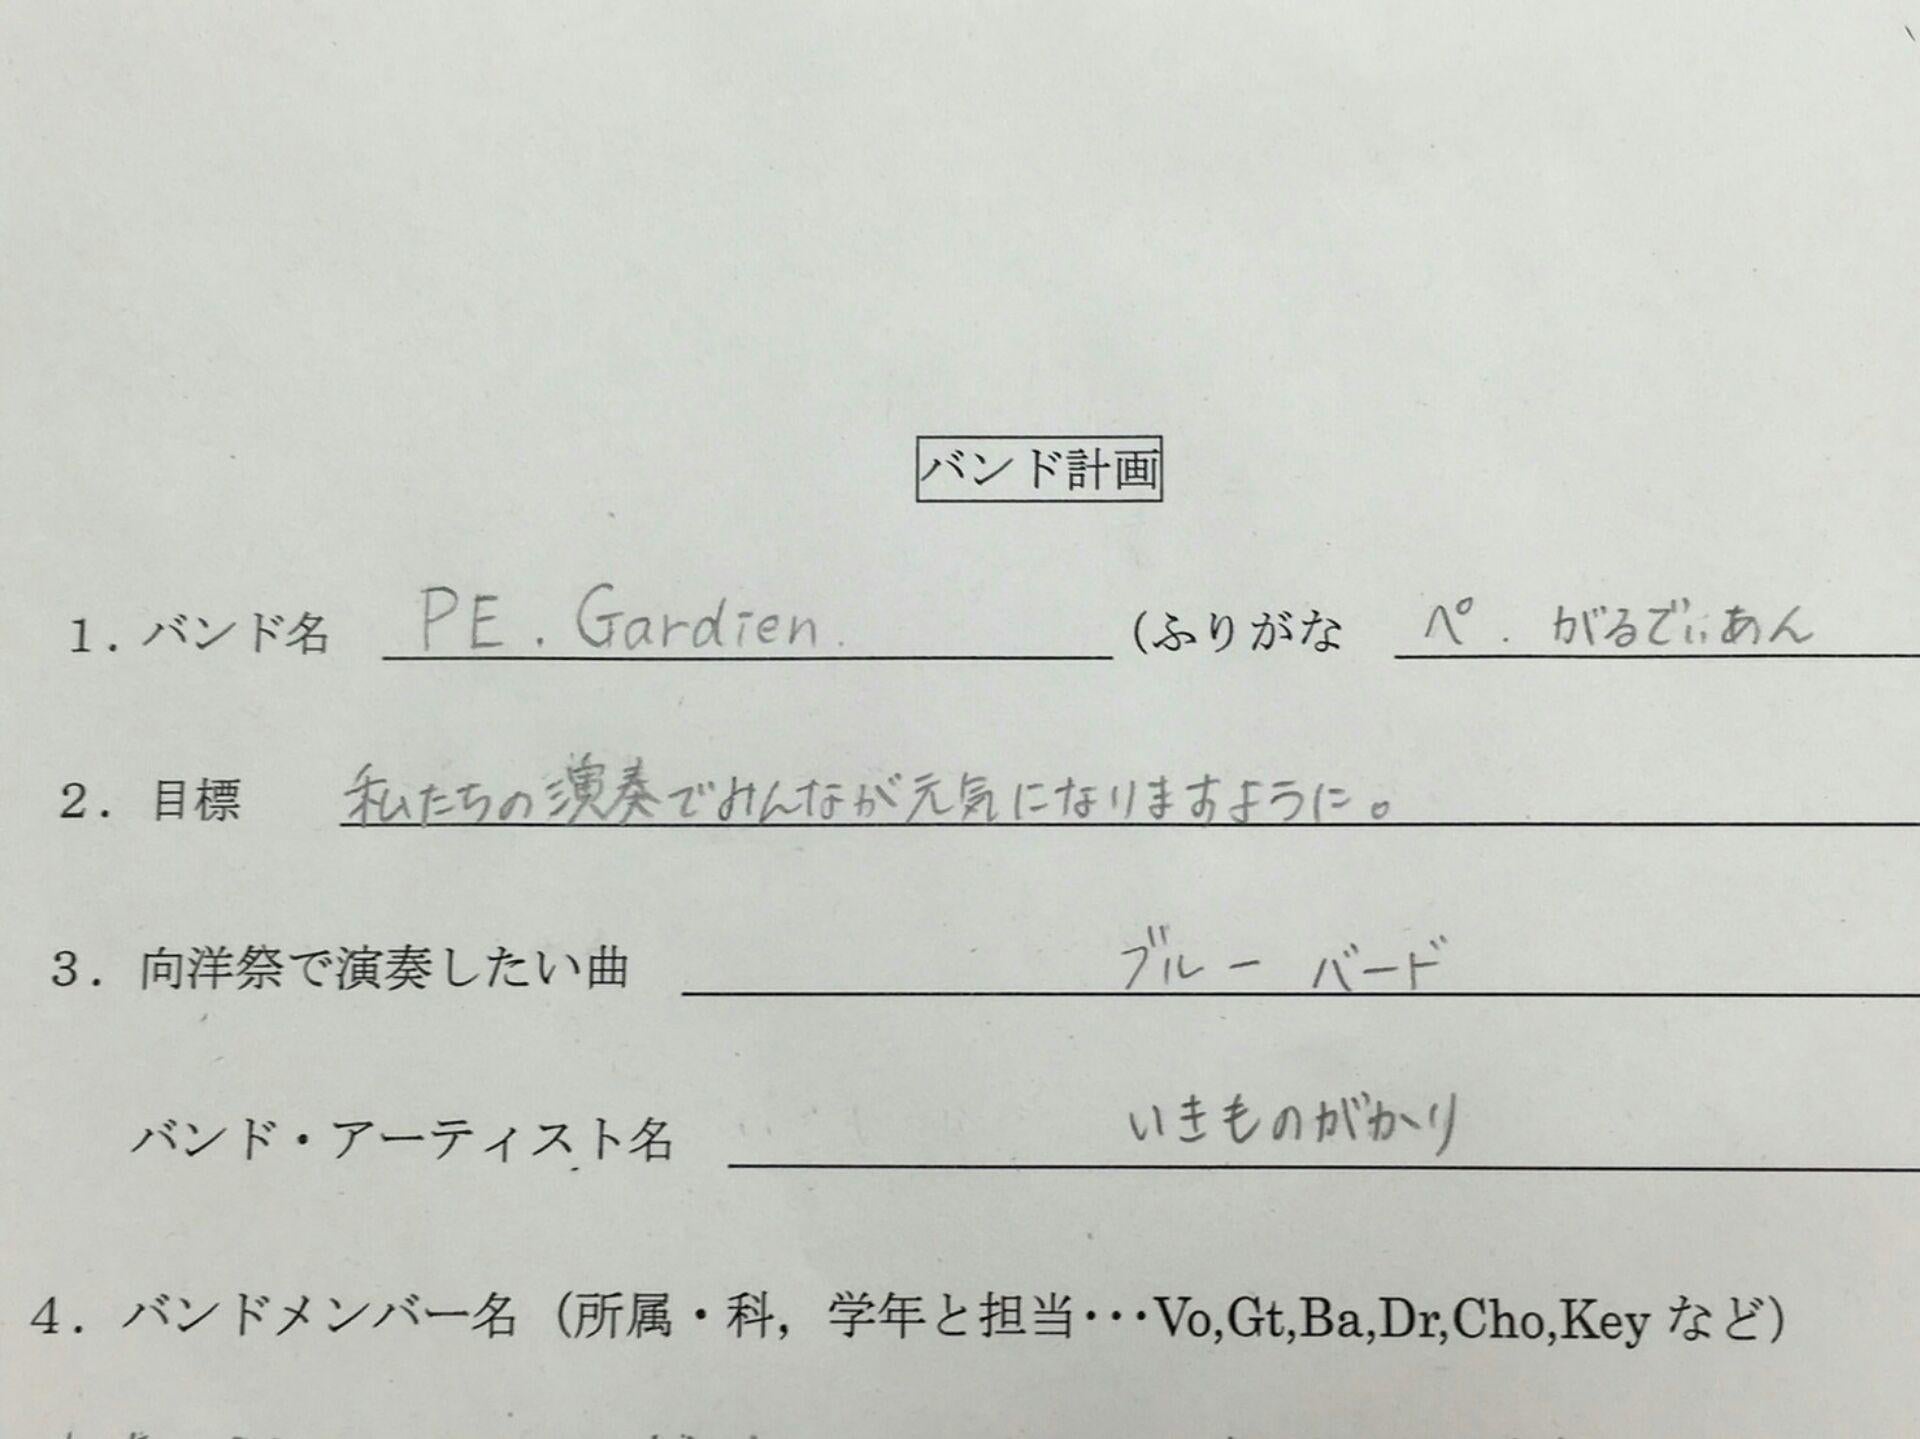 バンド計画
1. バンド名 PE. Gardien. (ふりがな ペ. がるでぃあん
2. 目標 私たちの演奏でみんなが元気になりますように。
3. 向洋祭で演奏したい曲 ブルーバード
バンド・アーティスト名 いきものがかり
4. バンドメンバー名（所属・科，学年と担当･･･Vo,Gt,Ba,Dr,Cho,Key など）